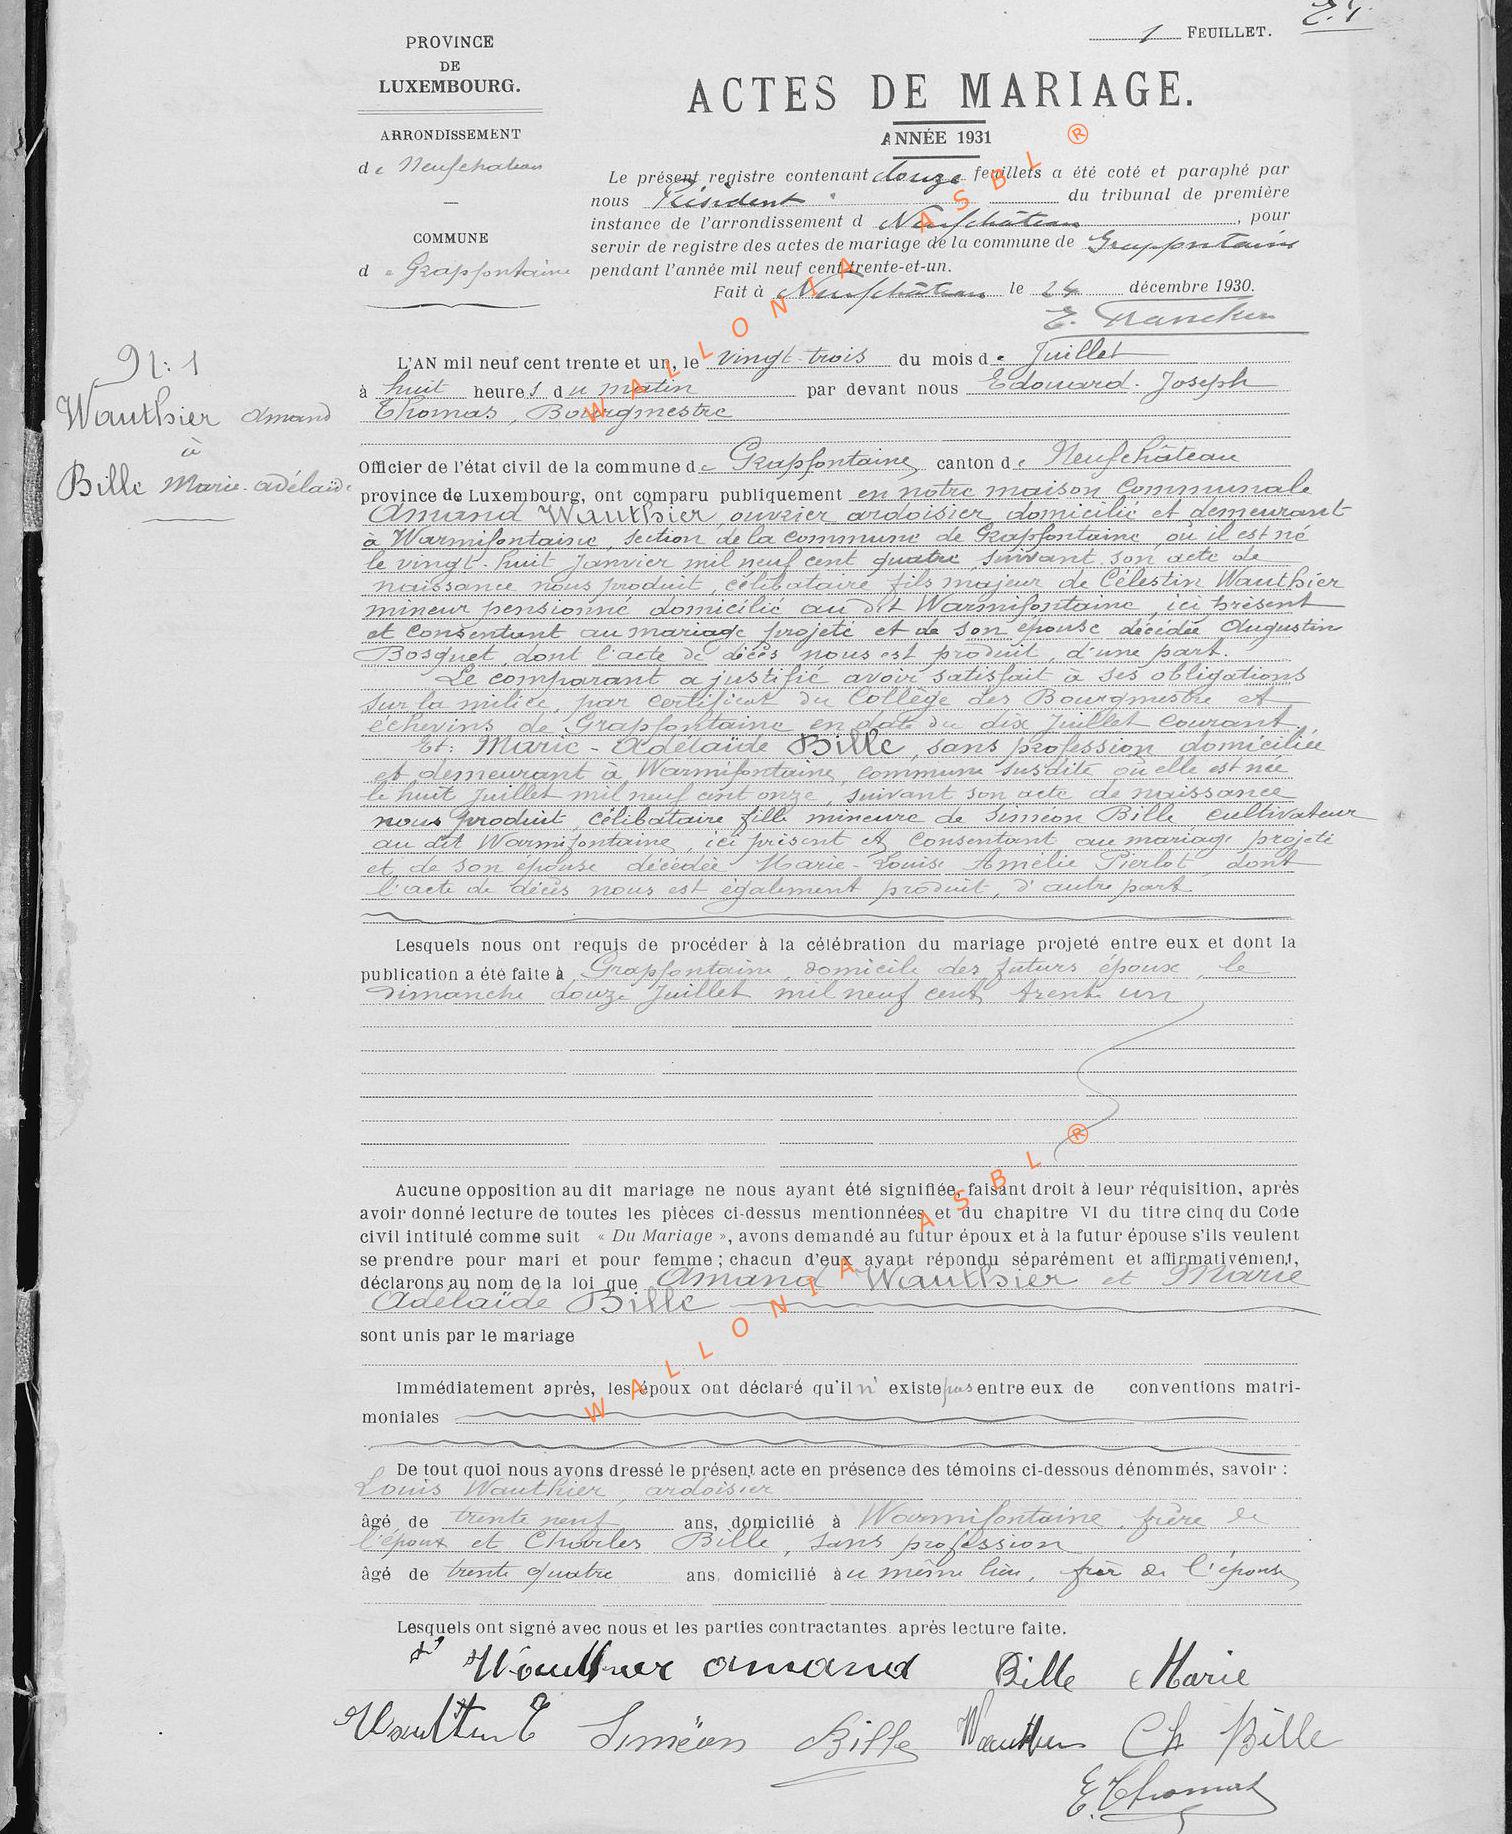 1 FEUILLET.
PROVINCE
DE
LUXEMBOURG.
ARRONDISSEMENT
de Neufchateau
COMMUNE
de Grapfontaine
ACTES DE MARIAGE.
ANNÉE 1931
Le présent registre contenant douze feuillets a été coté et paraphé par
nous Président du tribunal de première
instance de l'arrondissement d Neufchâteau, pour
servir de registre des actes de mariage de la commune de Grapfontaine
pendant l'année mil neuf cent trente-et-un.
Fait à Neufchâteau le 24 décembre 1930.
N: 1
Wauthier Amand
à
Bille Marie-Adélaïde
L'AN mil neuf cent trente et un, le vingt-trois du mois de Juillet
à huit heures du matin par devant nous Edouard-Joseph
Thomas, Bourgmestre
Officier de l'état civil de la commune de Grapfontaine, canton de Neufchâteau
province de Luxembourg, ont comparu publiquement en notre maison Communale
Amand Wauthier, ouvrier ardoisier, domicilié et demeurant
à Warmifontaine, section de la commune de Grapfontaine, où il est né
le vingt-huit Janvier mil neuf cent quatre, suivant son acte de
naissance nous produit, célibataire, fils majeur de Célestin Wauthier
mineur pensionné domicilié au dit Warmifontaine, ici présent
et consentant au mariage projeté et de son épouse décédée Augustin
Bosquet, dont l'acte de décès nous est produit, d'une part.
Le comparant a justifié avoir satisfait à ses obligations
sur la milice, par certificat du Collège des Bourgmestre et
échevins de Grapfontaine en date du dix Juillet courant
Et: Marie-Adélaïde Bille, sans profession domiciliée
et demeurant à Warmifontaine, commune susdite où elle est née
le huit Juillet mil neuf cent onze, suivant son acte de naissance
nous produit, célibataire fille mineure de Siméon Bille, cultivateur
au dit Warmifontaine, ici présent et consentant au mariage projeté
et de son épouse décédée Marie-Louise Amélie Pierlot, dont
l'acte de décès nous est également produit, d'autre part.
Lesquels nous ont requis de procéder à la célébration du mariage projeté entre eux et dont la
publication a été faite à Grapfontaine, domicile des futurs époux, le
dimanche douze Juillet mil neuf cent trente un
Aucune opposition au dit mariage ne nous ayant été signifiée, faisant droit à leur réquisition, après
avoir donné lecture de toutes les pièces ci-dessus mentionnées et du chapitre VI du titre cinq du Code
civil intitulé comme suit « Du Mariage », avons demandé au futur époux et à la futur épouse s'ils veulent
se prendre pour mari et pour femme ; chacun d'eux ayant répondu séparément et affirmativement,
déclarons au nom de la loi que Amand Wauthier et Marie
Adélaïde Bille
sont unis par le mariage
Immédiatement après, les époux ont déclaré qu'il n'existe pas entre eux de conventions matri-
moniales
De tout quoi nous avons dressé le présent acte en présence des témoins ci-dessous dénommés, savoir :
Louis Wauthier, ardoisier
âgé de trente neuf ans, domicilié à Warmifontaine, frère de
l'époux et Charles Bille, sans profession
âgé de trente quatre ans domicilié au même lieu, frère de l'épouse
Lesquels ont signé avec nous et les parties contractantes après lecture faite.
Wauthier Amand Bille Marie
Siméon Bille Wauthier Ch Bille
E. Thomas
WALLONIA ASBL ®
WALLONIA ASBL ®